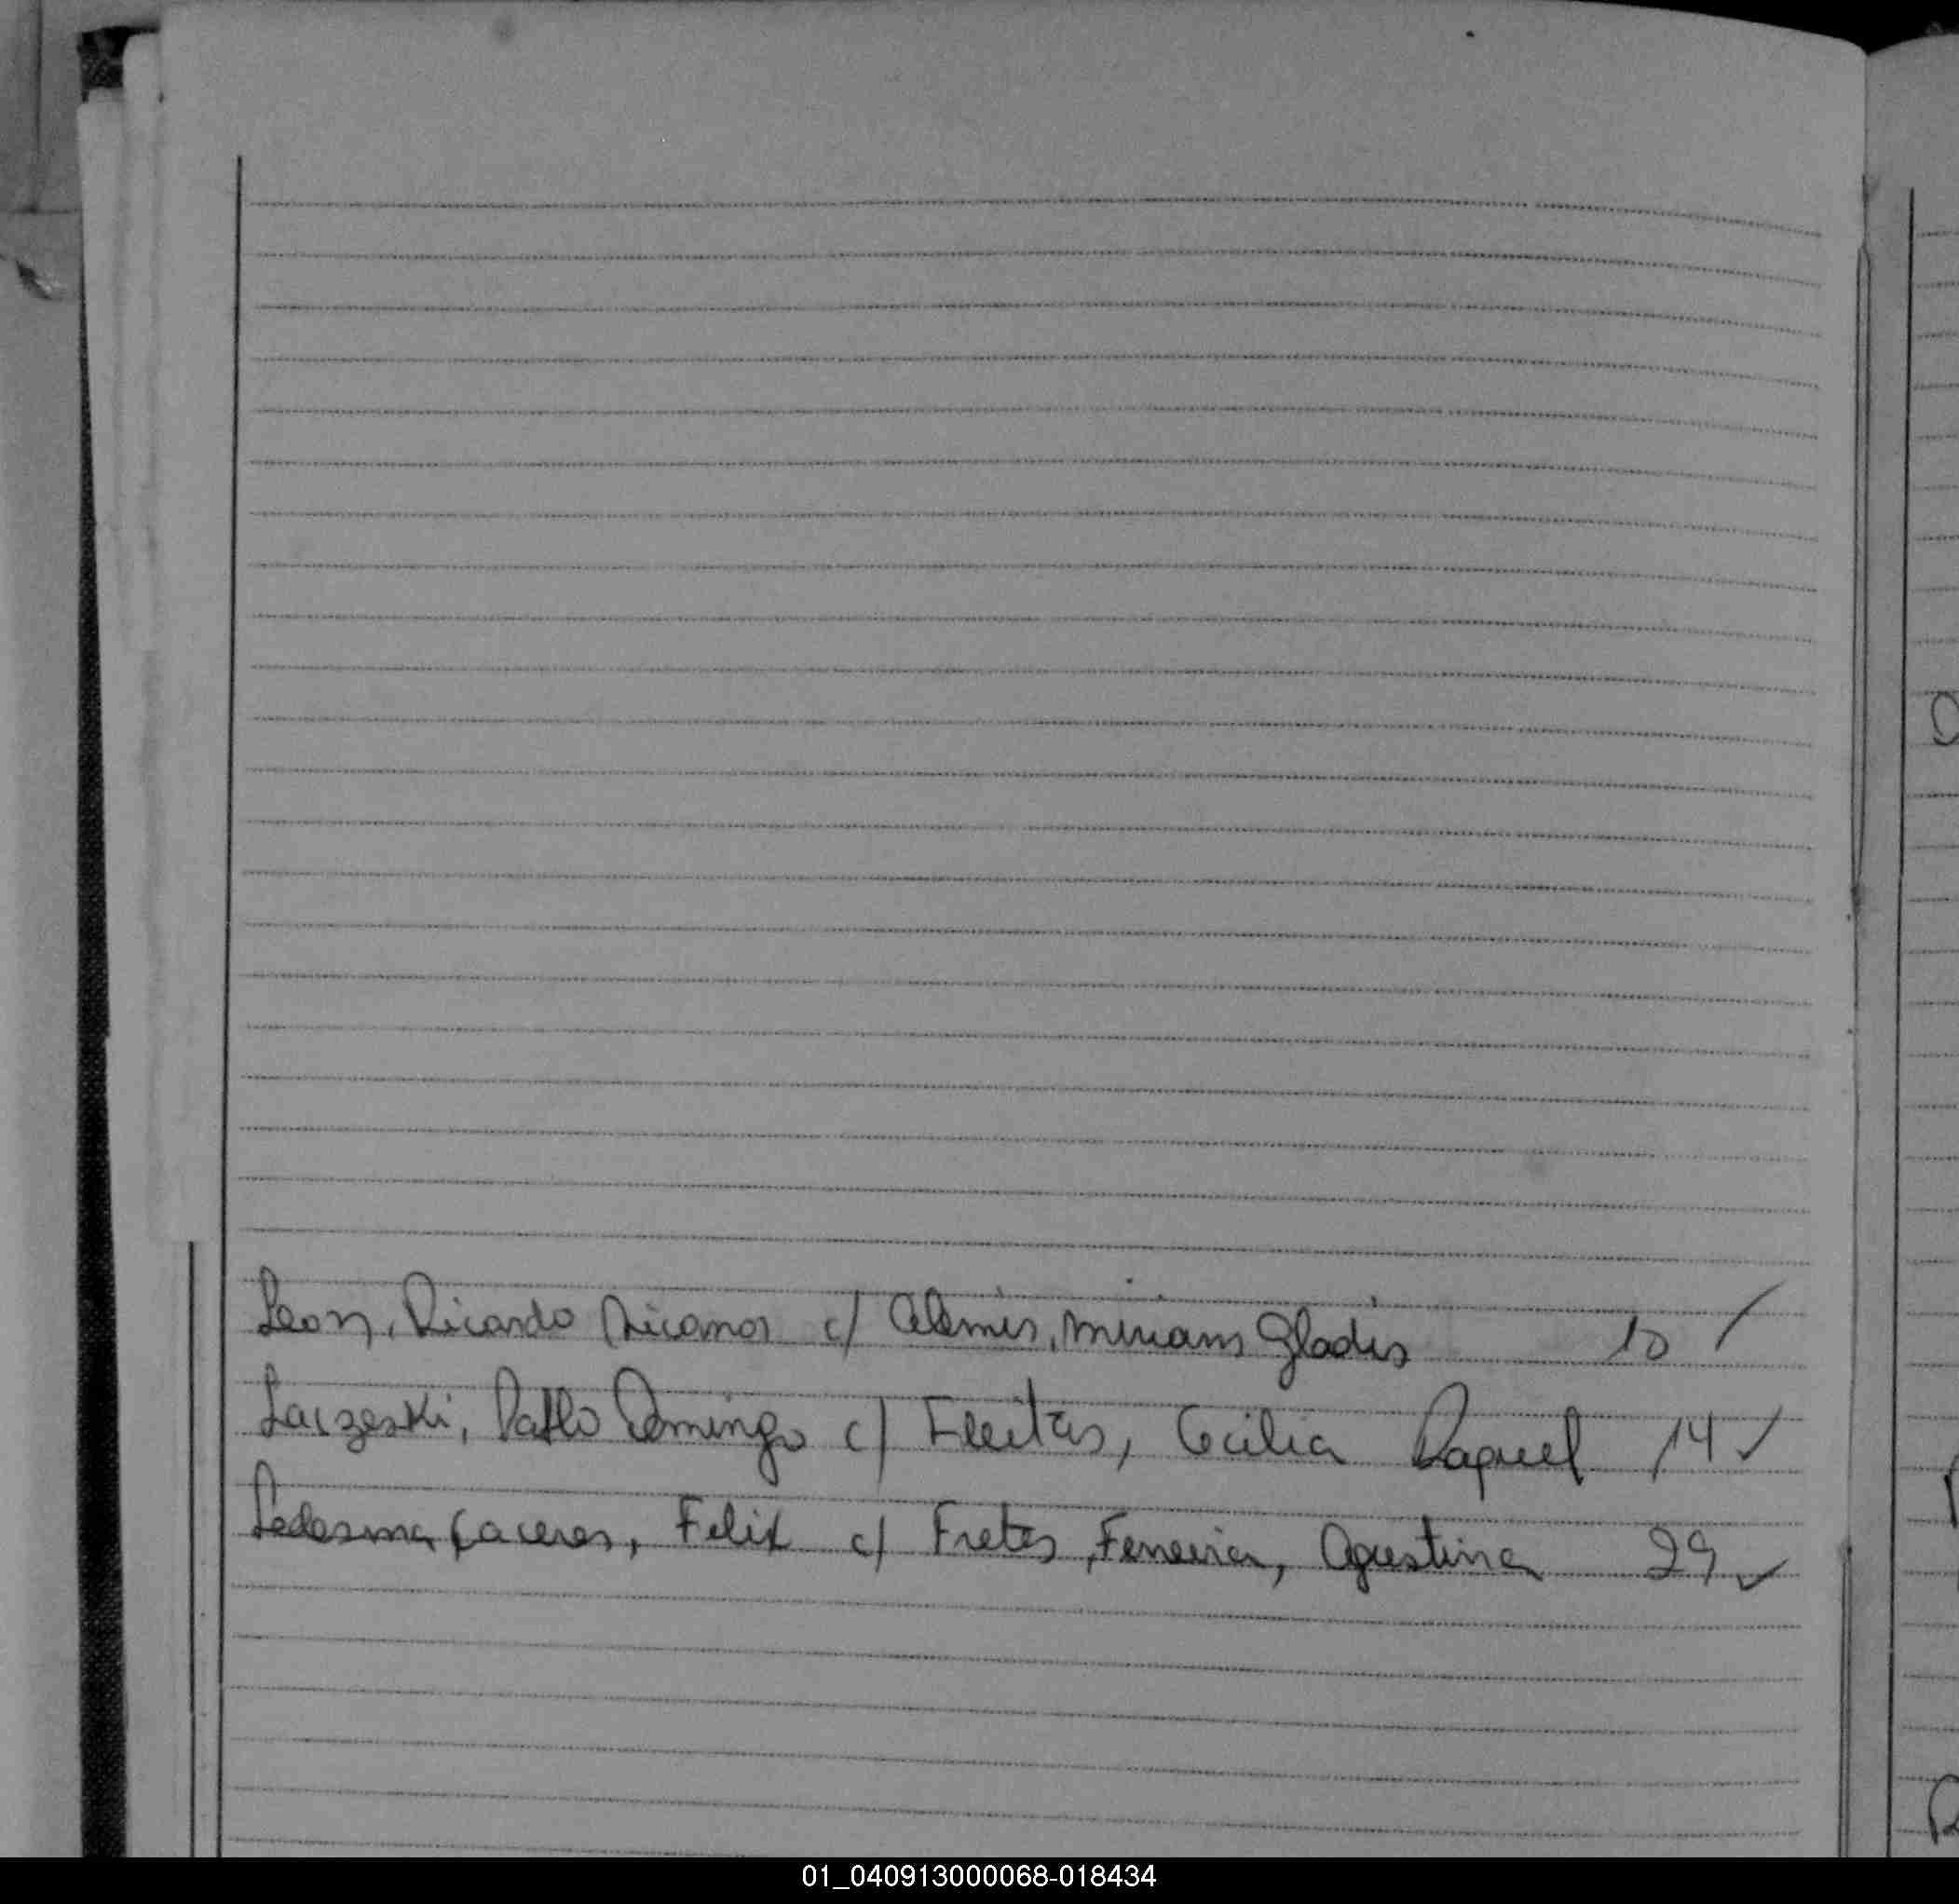 Leon, Ricardo Nicanor c/ Alemis, Miriam Gladis 10
Laczeski, Pablo Domingo c/ Fleitas, Cecilia Raquel 14 ✓
Ledesma Caceres, Felix c/ Fretes Ferreira, Agustina 29 ✓
01_040913000068-018434